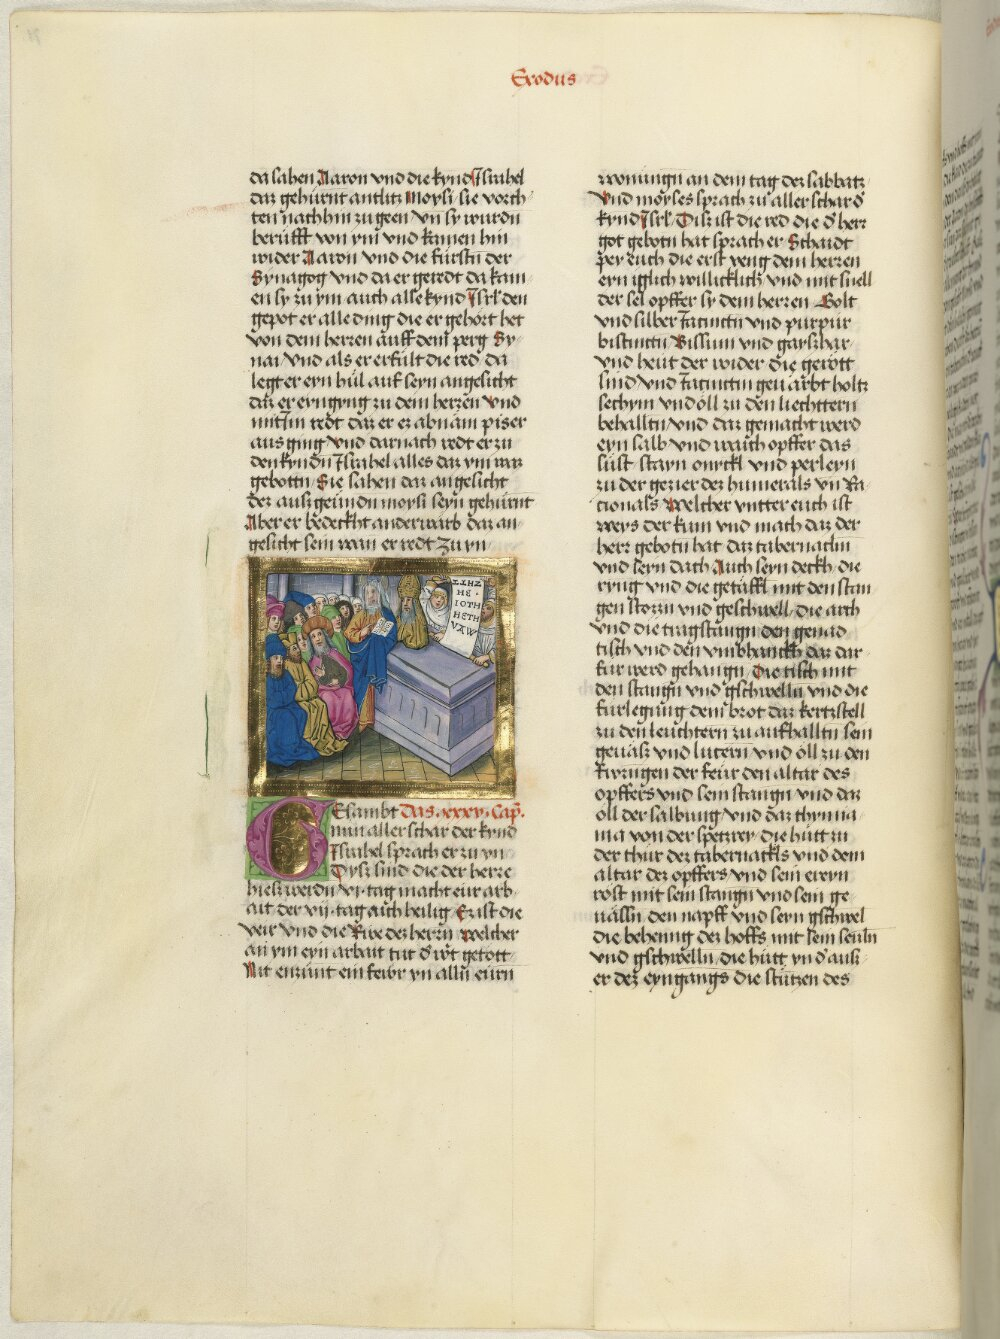 Exodus
da sahen Aaron vnd die kynd Israhel
daz gehürnt antlitz Moysi sie vorch-
ten nachhin zu geen Vn sy wurdn
berüfft von ym vnd kamen hin
wider Aaron vnd die fürstn der
Synagog vnd da er geredt da kam
en sy zu ym auch alle kynd Isrl den
gepot er alle ding die er gehört het
von dem herzen auff dem perg Sy-
nai vnd als er erfült die red da
legt er eyn hül auf seyn angesicht
daz er eyngyng zu dem herzen vnd
mit Im redt daz er er abnam piser
aus ging vnd darnach redt er zu
den kyndn Israhel alles daz ym waz
gebottn Sie sahen daz angesicht
der ausz geundn moysi seyn gehürnt
Aber er bedeckht anderwarb daz an-
gesicht sein wan er redt Zu yn
ΗΕ
ΙΟΤΗ
ΗΕΤΗ
VAW
GEsambt Das .xxxv. Cap.
nun aller schar der kynd
Israhel sprach er zu yn
Dysz sind die der herre
hiesz werdn vi tag macht eur arb-
ait der vij tag auch heilig Er ist die
veir vnd die Rwe des herrn welcher
an ym eyn arbait tut d wirt getött
Nit enzünt ein fewr yn alln eurn
wonungn an dem tag des sabbatz
Vnd moyses sprach zu aller schar d
kynd Isrl Disz ist die red die d herr
got gebotn hat sprach er Schaidt
pey euch die erst veng dem herzen
eyn iglich willicklich vnd mit snell
der sel opffer sy dem herzen Golt
vnd silber Iacinctn vnd purpur
bistinctn Bissum vnd gayszhar
vnd heut der wider die gerött
sind vnd Iacinctin geuarbt holtz
sechym vnd öll zu den liechttern
behalltn vnd daz gemacht werd
eyn salb vnd wauch opffer das
süst stayn onyckl vnd perleyn
zu der gezier des humerals vn Ra-
cionals Welcher vntter euch ist
weys der kum vnd mach daz der
herr gebotn hat daz tabernacln
vnd seyn dach Auch seyn deckh die
ryng vnd die getäffl mit den stan
gen storzn vnd geschwell die arch
vnd die tragstangn den genad
tisch vnd den vmbhanckh daz dar
für werd gehangn Die tisch mit
den stangn vnd gschwelln vnd die
fürlegung dem brot daz kertzstell
zu den leuchtern zu aufhalltn sein
geuäsz vnd lucern vnd öll zu den
kwzngen der feur den altar des
opffers vnd sein stangn vnd daz
öll der salbung vnd daz thymia
ma von der spetzrey die hütt zu
der thür dez tabernackls vnd dem
altar dez opffers vnd sein ereyn
rost mit sein stangn vnd sein ge
uässn den napff vnd seyn gschwel
die behenng des hoffs mit sein seuln
vnd gschwelln die hütt yn d ausz
er dez eyngangs die stützen des